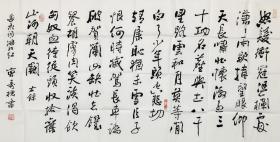 怒髮衝冠憑闌處
瀟瀟雨歇抬望眼仰
天長嘯壯懷激烈三
十功名塵與土八千
里路雲和月莫等閒
白了少年頭空悲切
靖康恥猶未雪臣子
恨何時滅駕長車踏
破賀蘭山缺壯志飢
餐胡虜肉笑談渴飲
匈奴血待從頭收拾舊
山河朝天闕
岳飛詞滿江紅
書